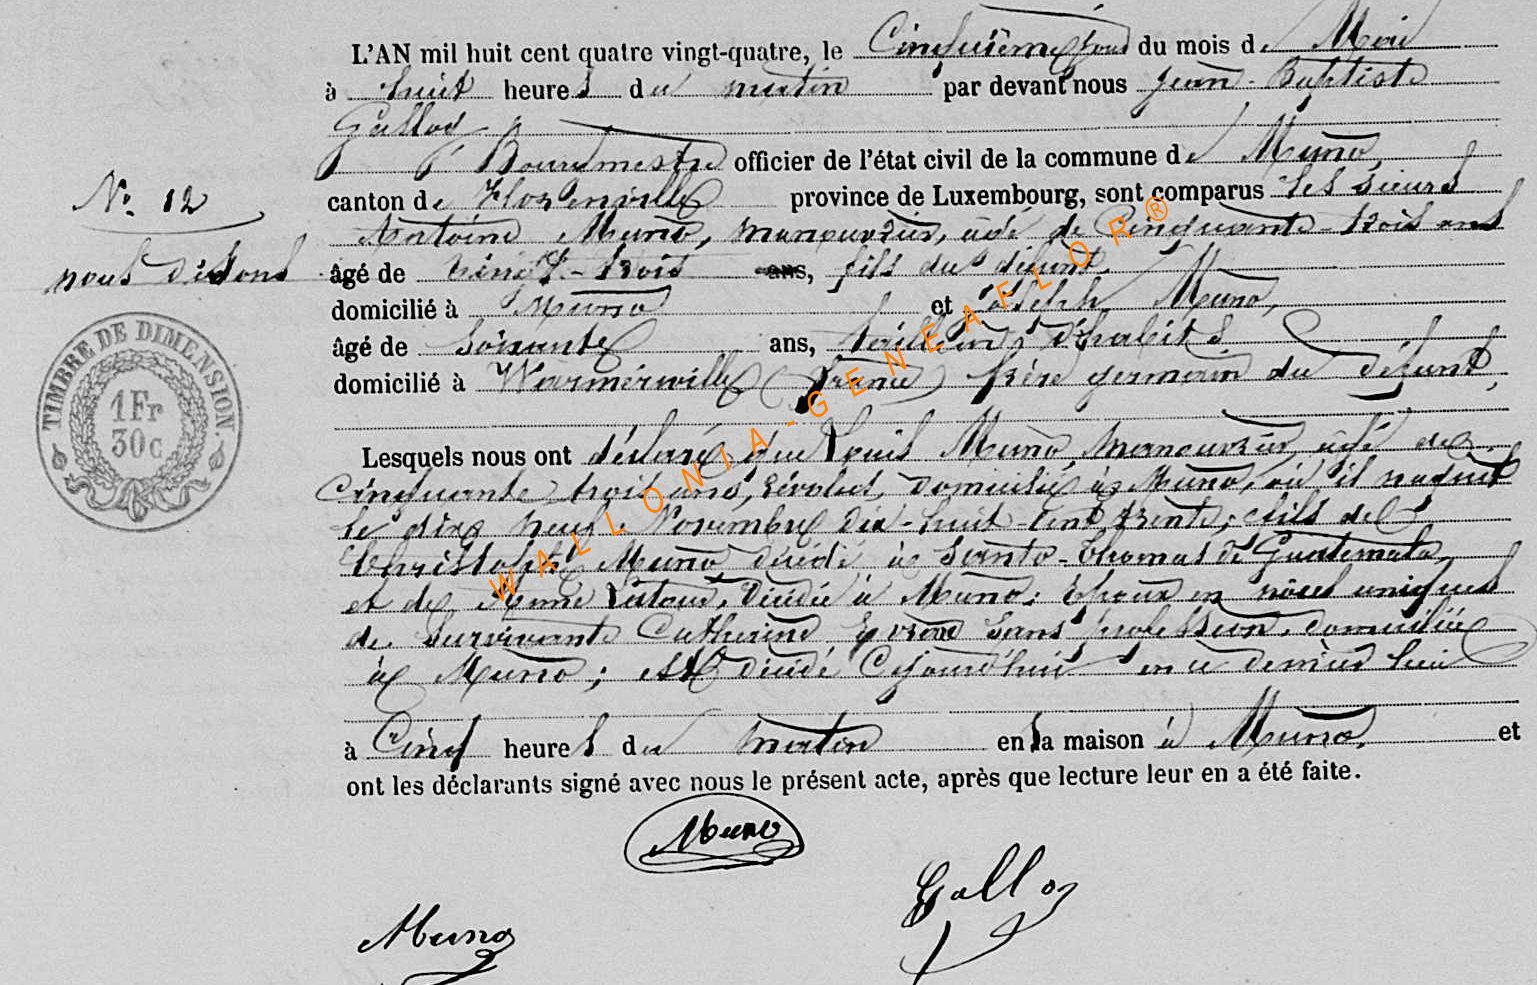 L'AN mil huit cent quatre vingt-quatre, le Cinquième jour du mois de Mai
à huit heures du matin par devant nous Jean-Baptiste
Gallos
Bourgmestre officier de l'état civil de la commune de Muno,
canton de Florenville province de Luxembourg, sont comparus les sieurs
Antoine Muno, manouvrier, âgé de Cinquante-trois ans
N° 12
nous disons
âgé de vingt-trois ans, fils du défunt,
domicilié à Muno et Joseph Muno,
âgé de soixante ans, tailleur d'habits
domicilié à Warmériville (France) frère germain du défunt,
Lesquels nous ont déclaré que Louis Muno, manouvrier, âgé de
Cinquante trois ans, révolus, domicilié à Muno, où il naquit
le dix neuf Novembre dix-huit-cent trente; fils de
Christophe Muno décédé à Santo-Thomas de Guatemala,
et de Anne Latour, décédée à Muno; Epoux en nôces uniques
de survivante Catherine sans profession, domiciliée
à Muno; est décédé Cejourd'hui en ce dernier lieu
à Cinq heures du matin en sa maison à Muno, et
ont les déclarants signé avec nous le présent acte, après que lecture leur en a été faite.
Muno
Gallos
Muno
TIMBRE DE DIMENSION.
1 Fr
30c
WALLONIA-GENEAFLOR®